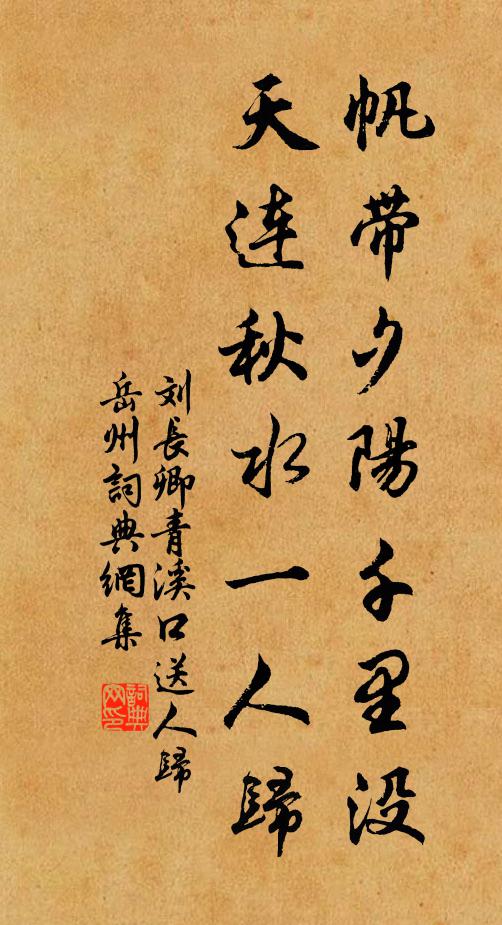 帆带夕陽千里没
天连秋水一人歸
刘長卿青溪口送人歸
岳州詞典網集
詞典网印